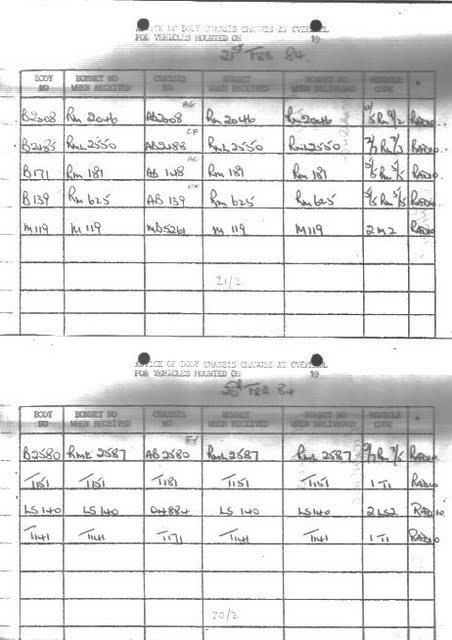 NOTICE OF BODY CHASSIS CHANGES AT OVERHAUL
FOR VEHICLES MOUNTED ON 19
21st FEB 84.
BODY NO BONNET NO WHEN RECEIVED CHASSIS NO BONNET BONNET NO WHEN DELIVERED SCHEDULE CODE
B2008 Rm 2046 AB2008 AG Rm 2046 Rm 2046 RADIO
B2485 RmL 2550 AB2488 CF RmL 2550 RmL 2550 RADIO
B171 Rm 181 AB 148 AC Rm 181 Rm 181 5/5 Rm 5/5 RADIO
B139 Rm 625 AB 139 Rm 625 Rm 625 5/5 Rm 5/5 RADIO
M 119 M 119 MB5261 M 119 M119 2 M 2 RADIO
21/2
NOTICE OF BODY CHASSIS CHANGES AT OVERHAUL
FOR VEHICLES MOUNTED ON 19
FEB 84
BODY NO BONNET NO WHEN RECEIVED CHASSIS NO BONNET WHEN RECEIVED BONNET NO WHEN DELIVERED SCHEDULE CODE
B2580 RmL 2587 AB 2580 RmL 2587 RmL 2587 RADIO
T1151 T1151 T1181 T1151 T1151 1 T1 RADIO
LS 140 LS 140 04884 LS 140 LS140 2 LS2 RADIO
T1141 T1141 T1171 T1141 T1141 1 T1 RADIO
20/2